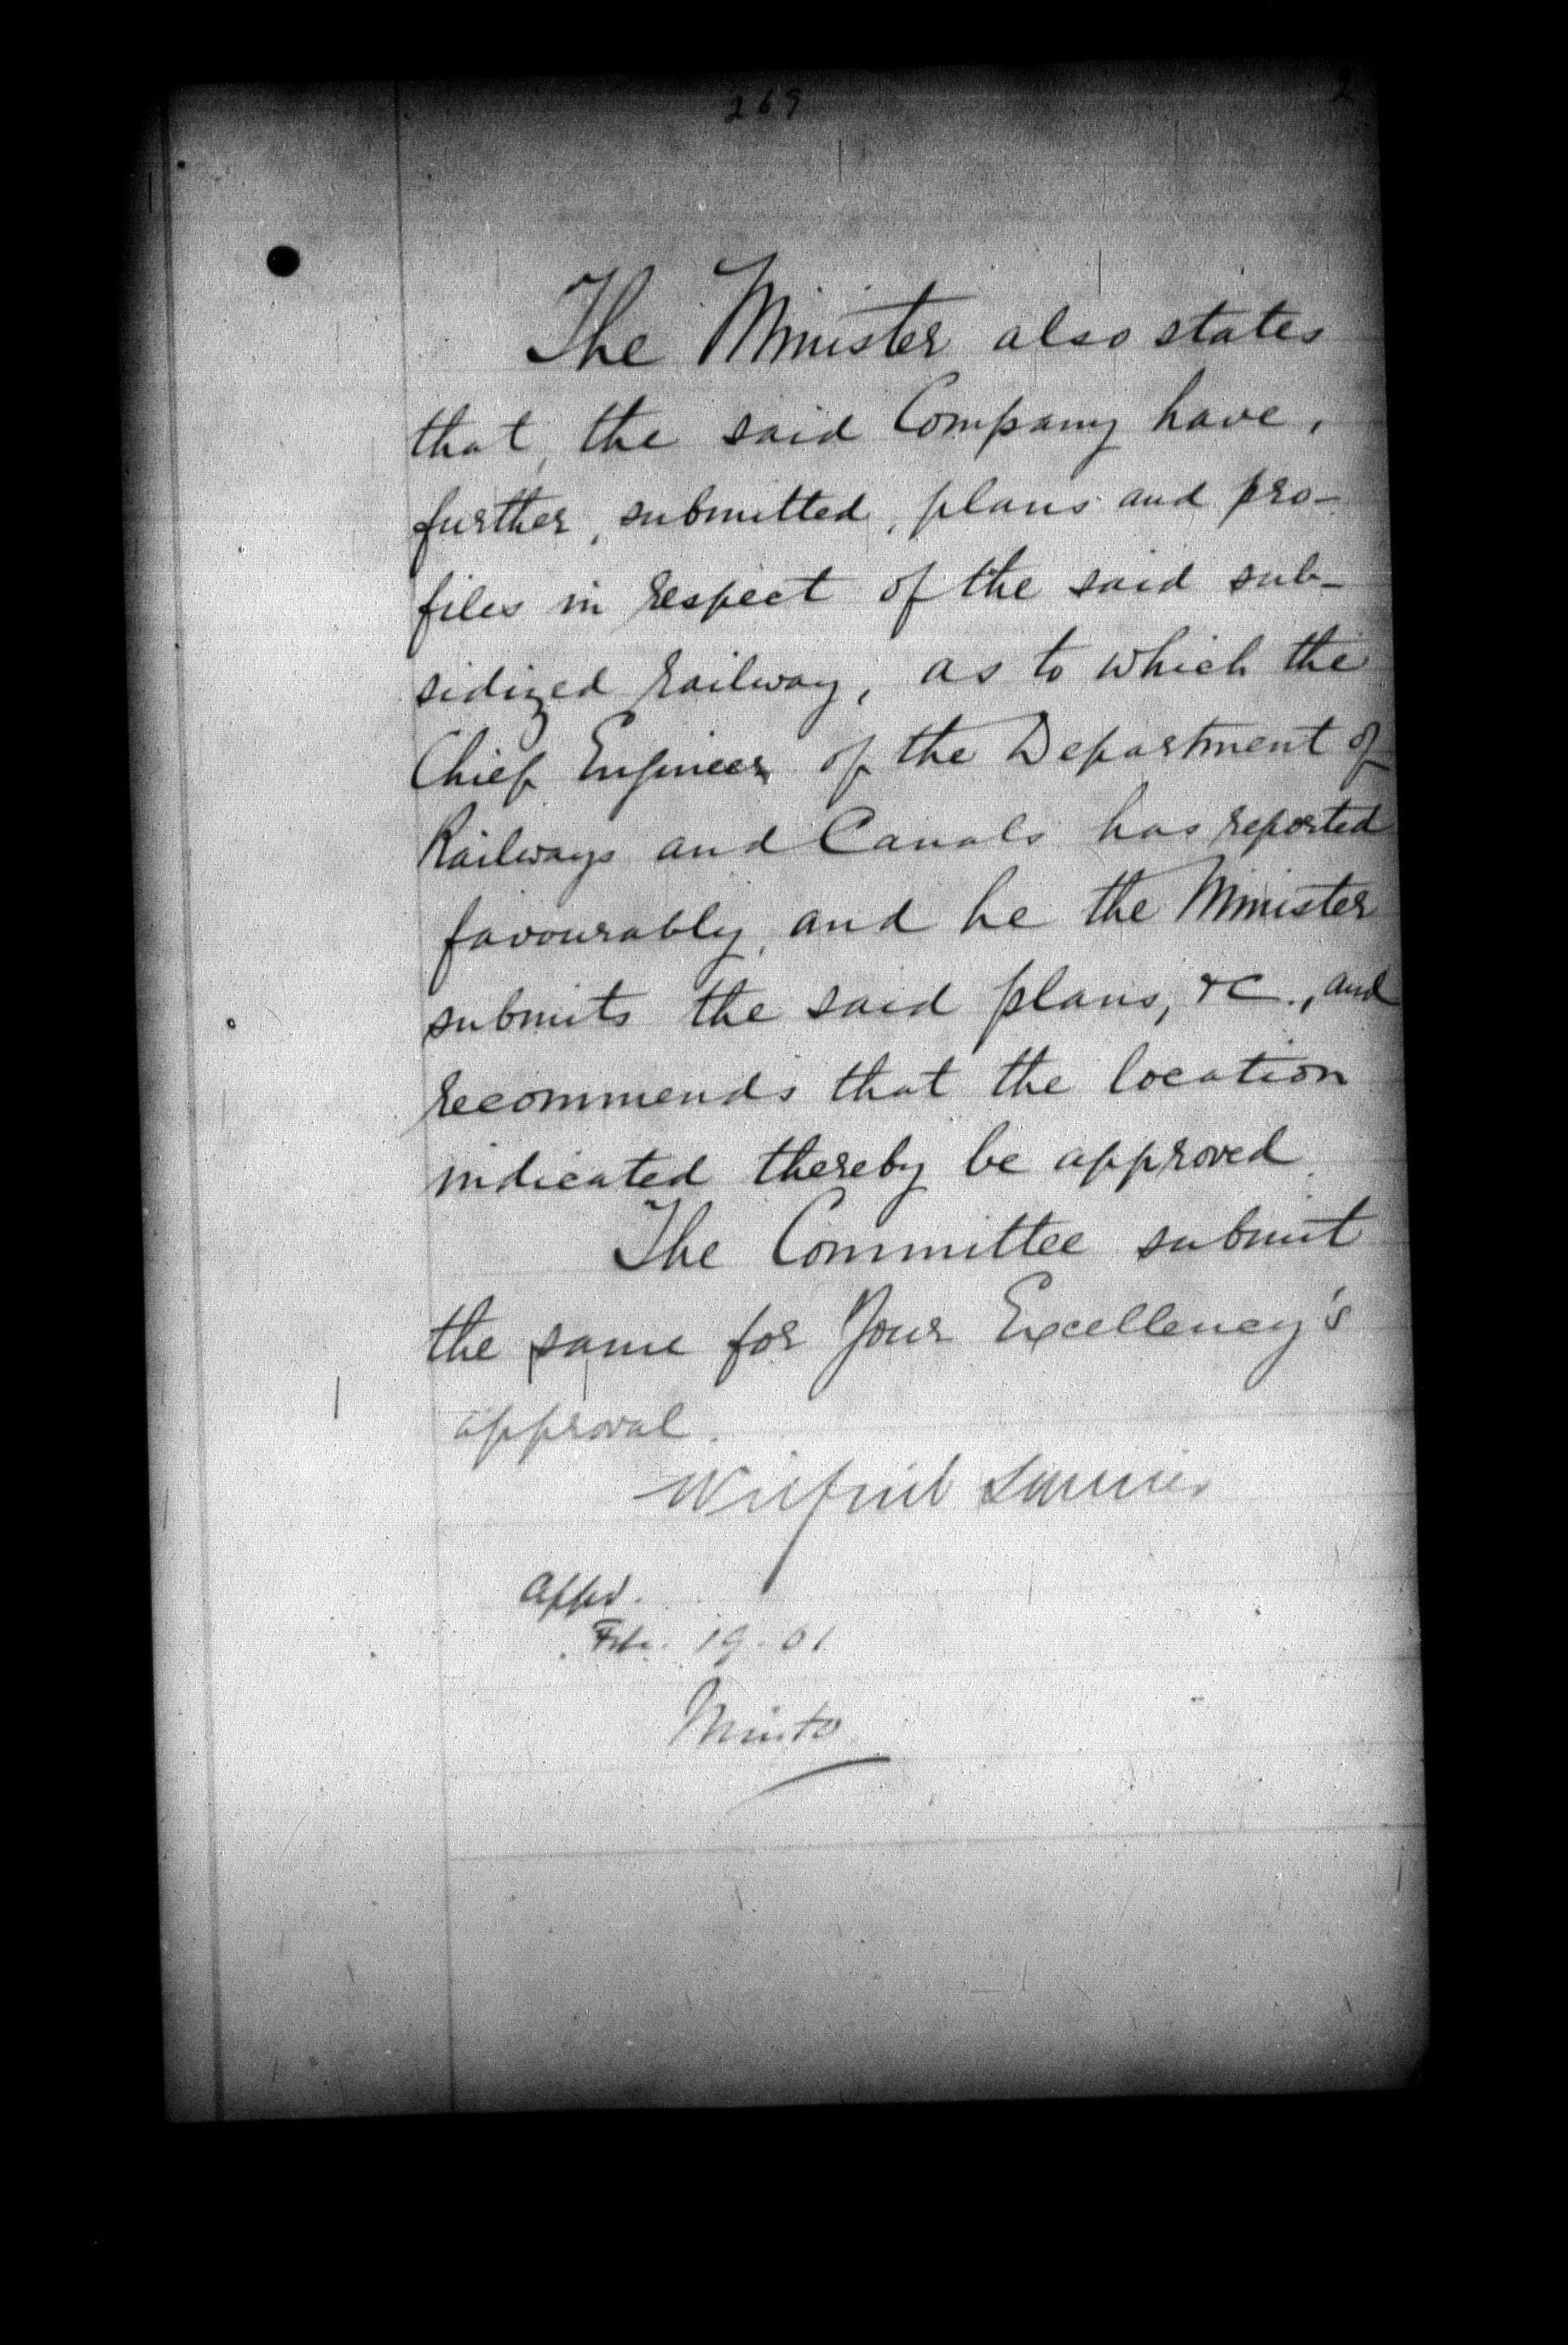 269
2
The Minister also states
that, the said Company have,
further, submitted, plans and pro-
files in respect of the said sub-
sidized railway, as to which the
Chief Engineer of the Department of
Railways and Canals has reported
favourably, and he the Minister
submits the said plans, &c., and
recommends that the location
indicated thereby be approved.
The Committee submit
the same for Your Excellency's
approval.
Wilfrid Laurier
Appd.
Feb. 19. 01
Minto